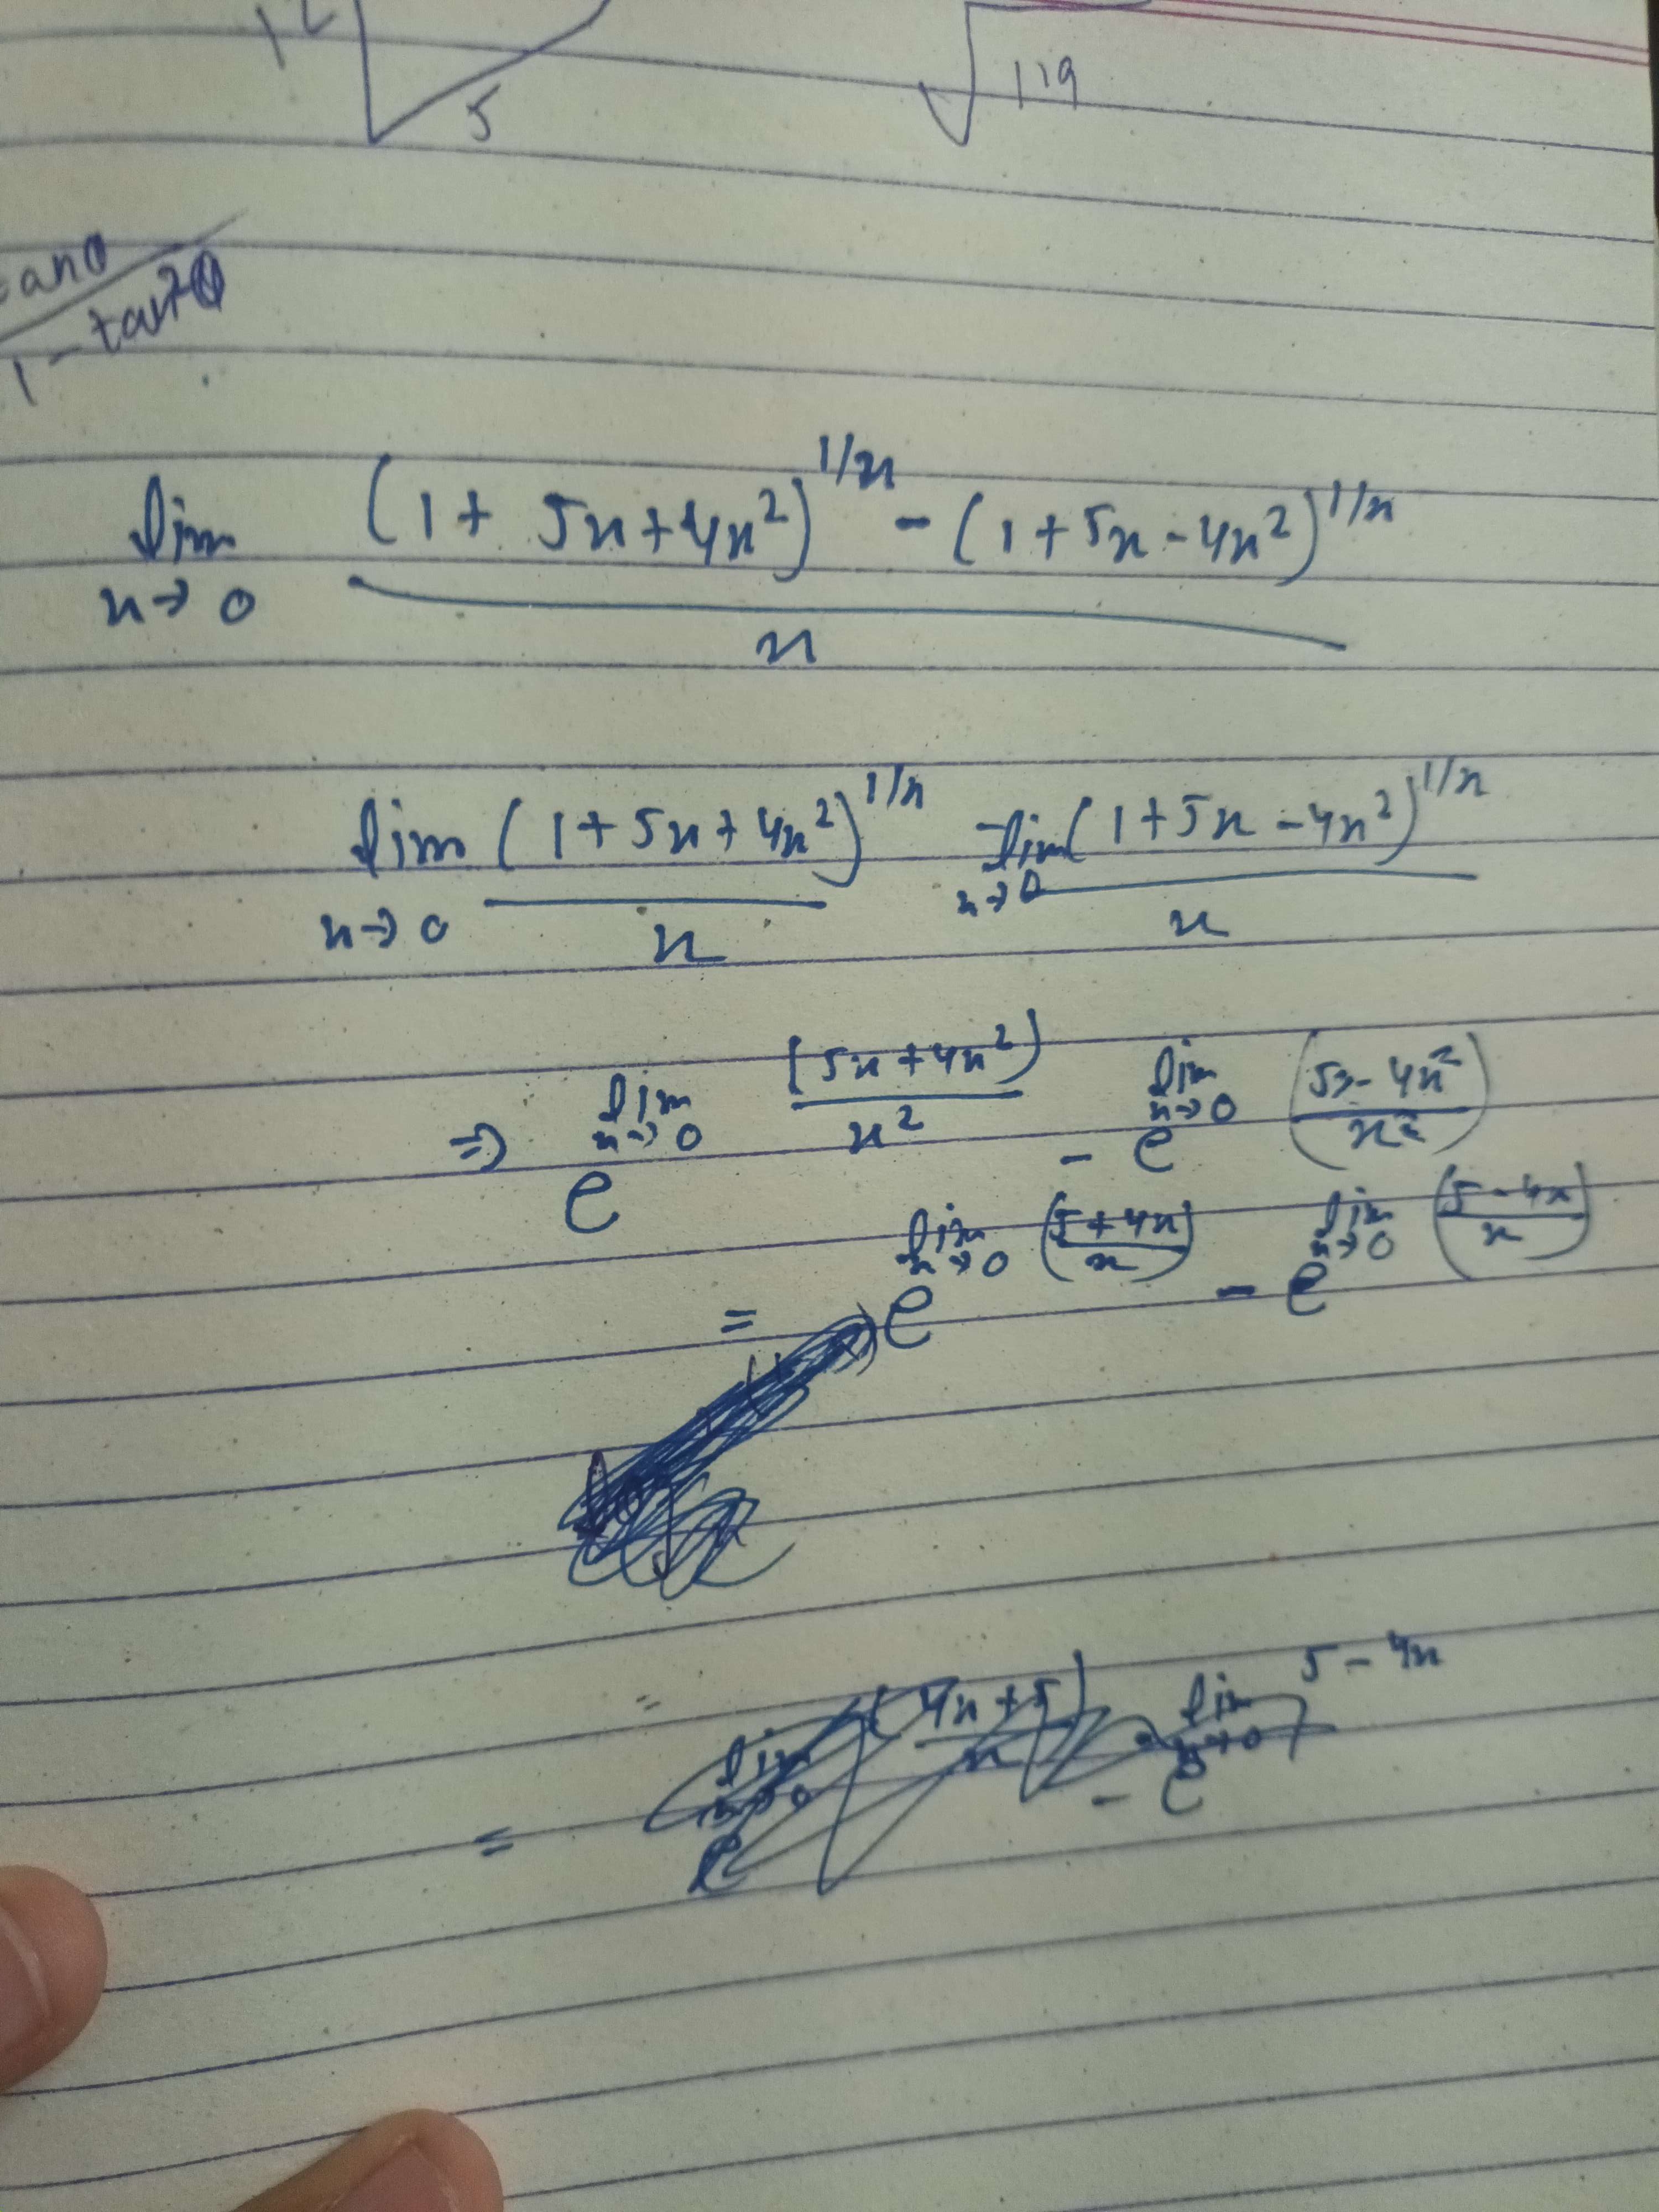 12
5
√119
tanθ
1 - tan²θ
lim x→0 (1 + 5x + 4x²)^1/x - (1 + 5x - 4x²)^1/x
x
lim x→0 (1 + 5x + 4x²)^1/x / x - lim x→0 (1 + 5x - 4x²)^1/x / x
⇒ e^lim x→0 (5x + 4x²)/x² - e^lim x→0 (5x - 4x²/x²)
= e^lim x→0 (5 + 4x/x) - e^lim x→0 (5 - 4x/x)
=
= e^lim x→0 (4x + 5)/x - e^lim x→0 5 - 4x